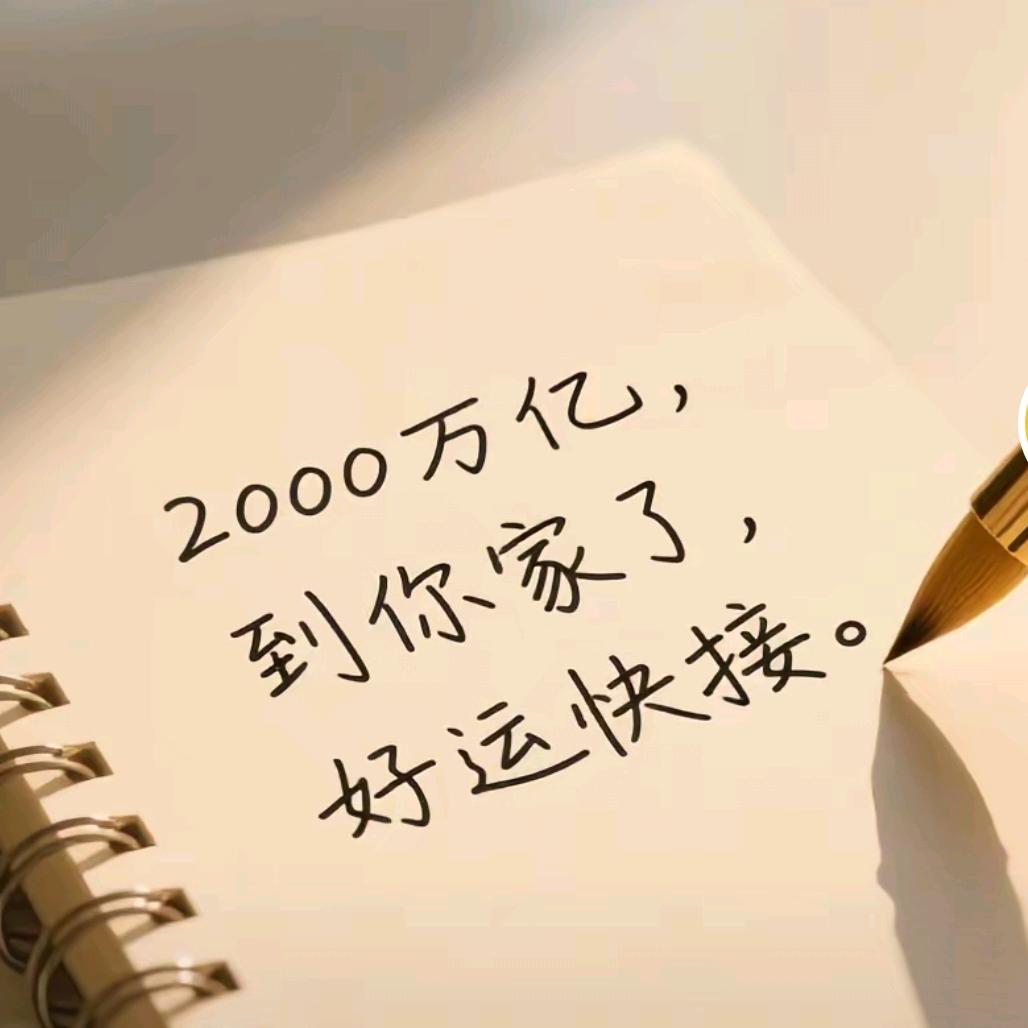 2000万亿，
到你家了，
好运快接。